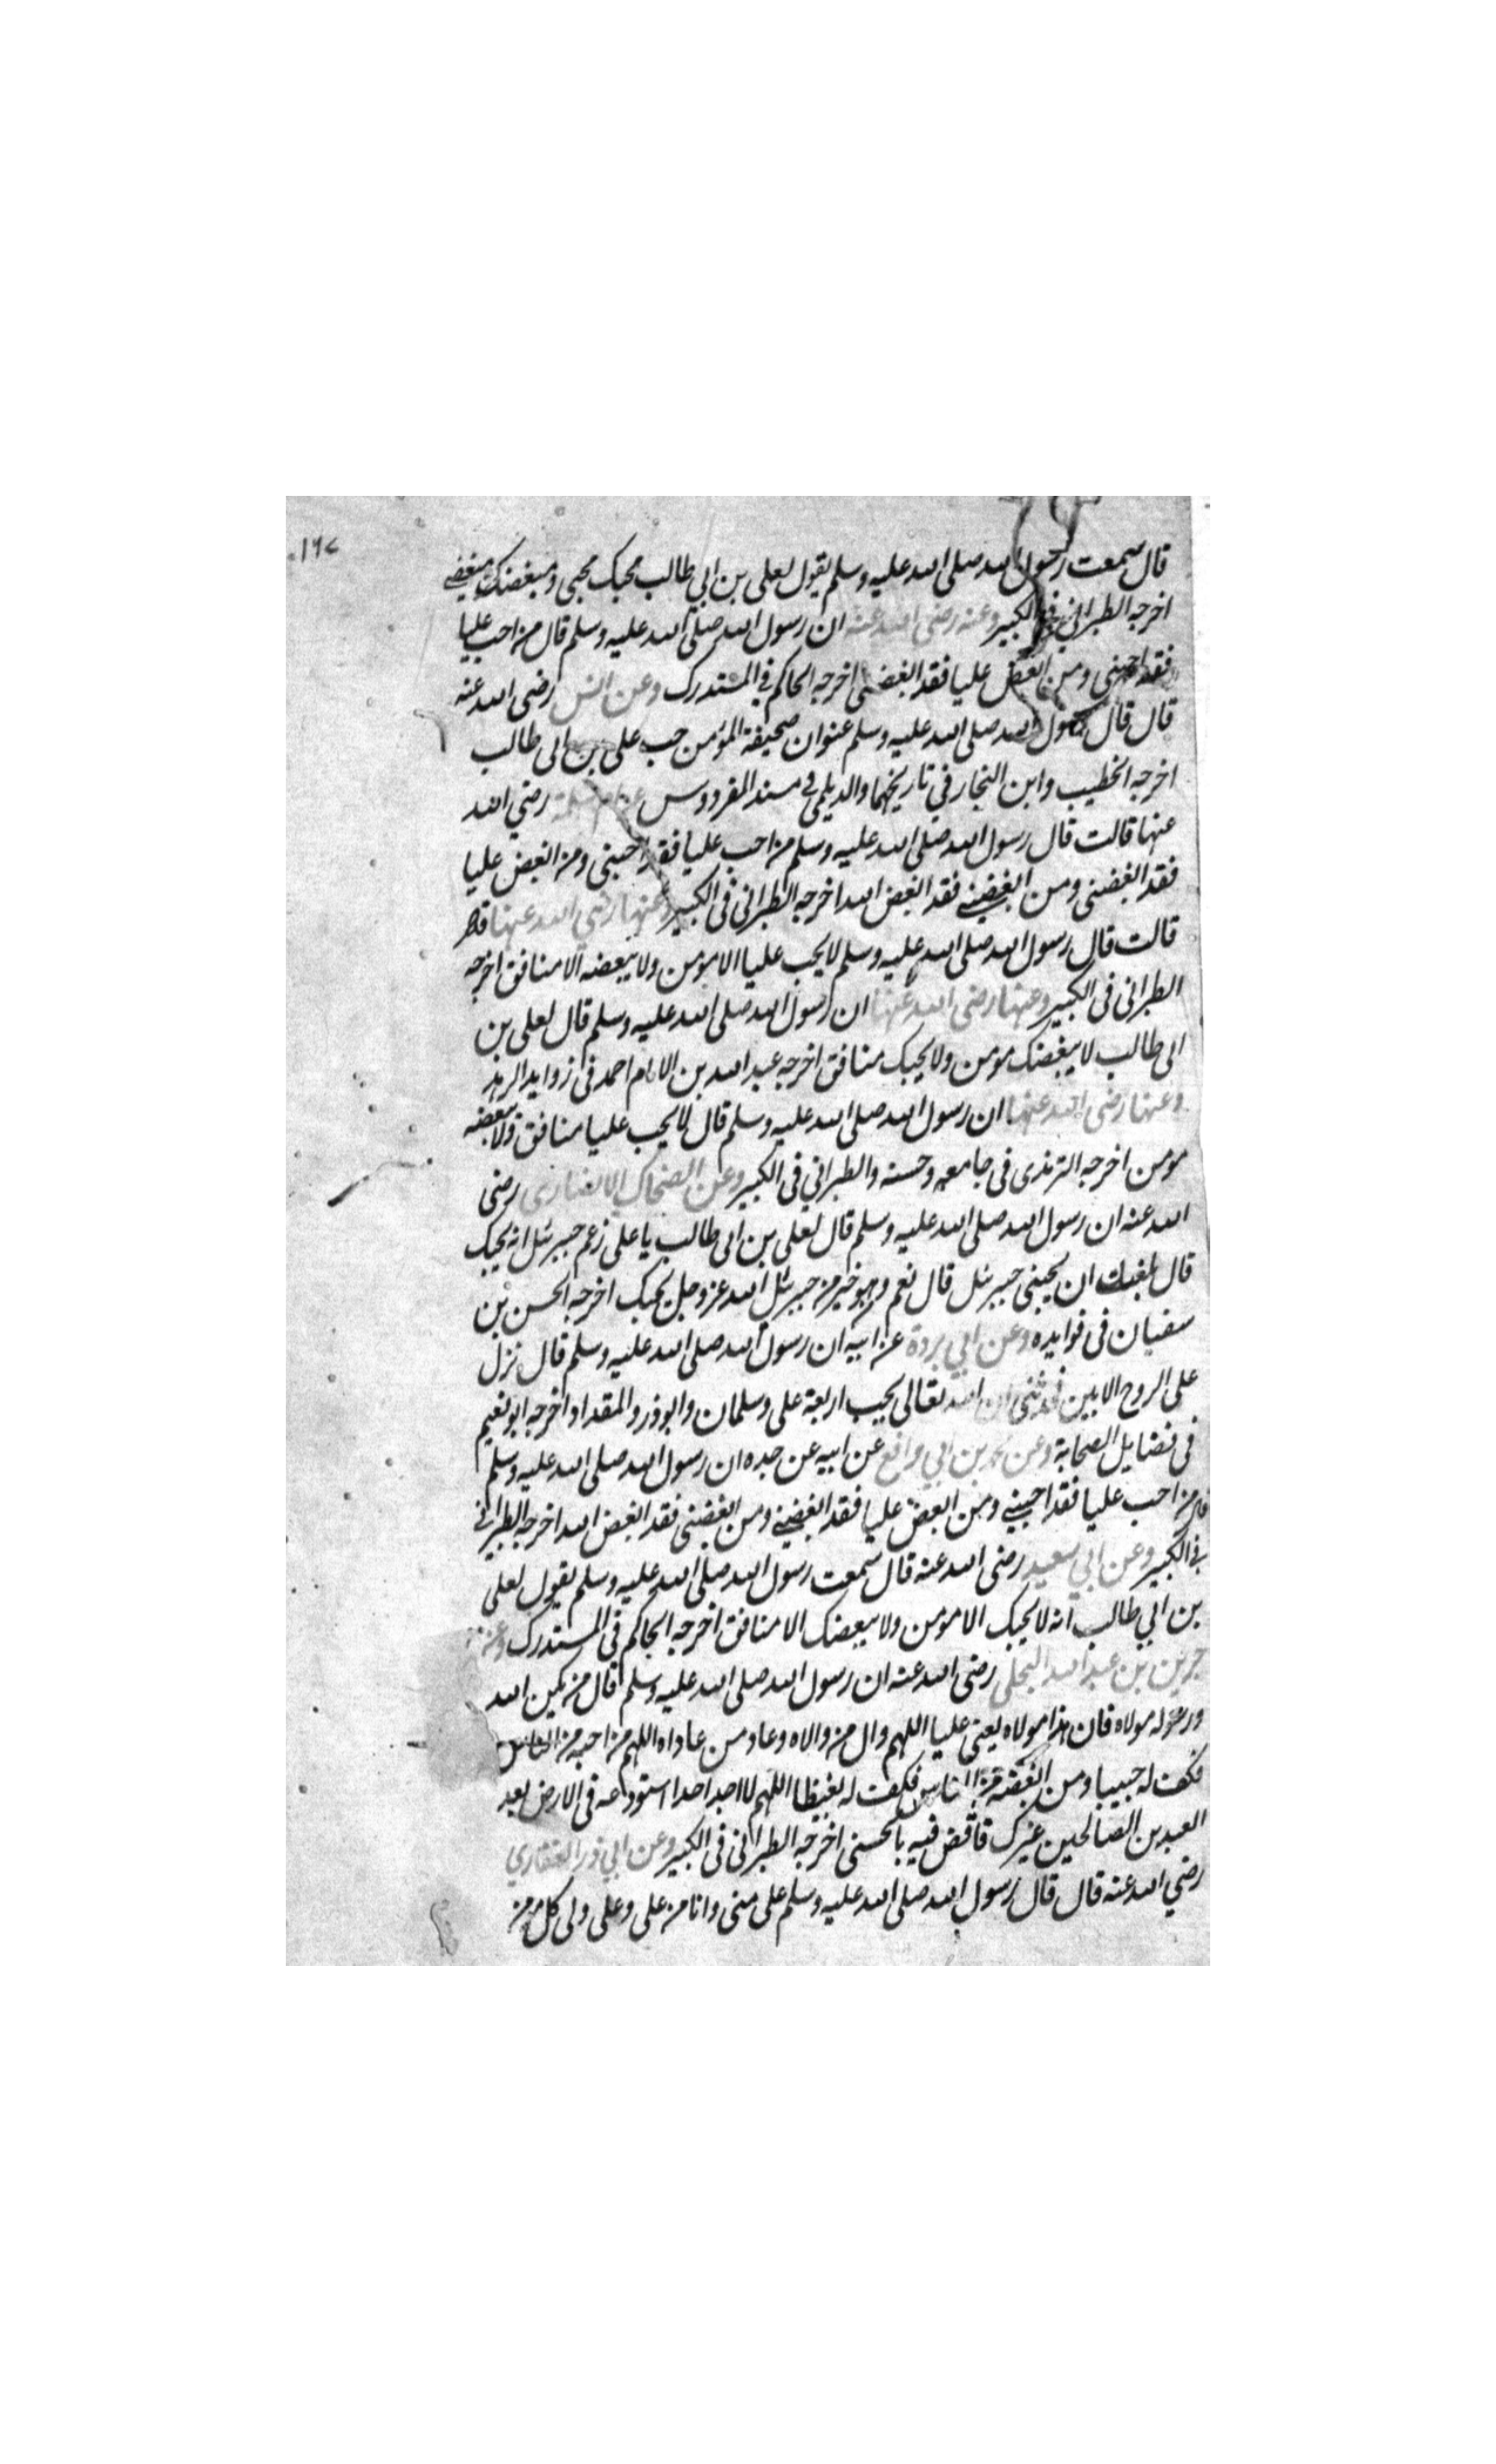 ١٦٧
قال سمعت رسول الله صلى الله عليه وسلم يقول لعلى بن ابي طالب محبك محبى ومبغضك مبغضى
اخرجه الطبرانى فى الكبير وعنه رضى الله عنه ان رسول الله صلى الله عليه وسلم قال من احب عليا
فقد احبنى ومن ابغض عليا فقد ابغضنى اخرجه الحاكم فى المستدرك وعن انس رضى الله عنه
قال قال رسول الله صلى الله عليه وسلم عنوان صحيفة المؤمن حب على بن ابى طالب
اخرجه الخطيب وابن النجار في تاريخهما والديلمى فى مسند الفردوس عن ام سلمة رضي الله
عنها قالت قال رسول الله صلى الله عليه وسلم من احب عليا فقد احبنى ومن ابغض عليا
فقد ابغضنى ومن ابغضنى فقد ابغض الله اخرجه الطبرانى فى الكبير وعنها رضي الله عنها
قالت قال رسول الله صلى الله عليه وسلم لا يحب عليا الا مومن ولا يبغضه الا منافق اخرجه
الطبرانى فى الكبير وعنها رضى الله عنها ان رسول الله صلى الله عليه وسلم قال لعلى بن
ابى طالب لا يبغضك مومن ولا يحبك منافق اخرجه عبد الله بن الامام احمد فى زوايد الزهد
وعنها رضى الله عنها ان رسول الله صلى الله عليه وسلم قال لا يحب عليا منافق ولا يبغضه
مومن اخرجه الترمذى فى جامعه وحسنه والطبراني فى الكبير وعن الضحاك الانصارى رضى
الله عنه ان رسول الله صلى الله عليه وسلم قال لعلى بن ابى طالب يا على زعم جبرئل انه يحبك
قال بلغت ان يحبنى جبرئل قال نعم وهو خير من جبرئل الله عز وجل يحبك اخرجه الحسن بن
سفيان فى فوايده وعن ابي بردة عن ابيه ان رسول الله صلى الله عليه وسلم قال نزل
على الروح الامين فحدثنى ان الله تعالى يحب اربعة على وسلمان وابوذر والمقداد اخرجه ابو نعيم
فى فضايل الصحابة وعن محمد بن ابي رافع عن ابيه عن جده ان رسول الله صلى الله عليه وسلم
قال من احب عليا فقد احبنى ومن ابغض عليا فقد ابغضنى ومن ابغضنى فقد ابغض الله اخرجه الطبرانى
فى الكبير وعن ابي سعيد رضى الله عنه قال سمعت رسول الله صلى الله عليه وسلم يقول لعلى
بن ابي طالب انه لا يحبك الا مومن ولا يبغضك الا منافق اخرجه الحاكم فى المستدرك وعن
جرير بن عبد الله البجلى رضى الله عنه ان رسول الله صلى الله عليه وسلم قال من يكن الله
ورسوله مولاه فان هذا مولاه يعنى عليا اللهم وال من والاه وعاد من عاداه اللهم من احبه من الناس
فكن له حبيبا ومن ابغضه من الناس فكن له بغيضا اللهم لا اجد احدا استودعه فى الارض بعد
العبدين الصالحين غيرك فاقض فيه بالحسنى اخرجه الطبرانى فى الكبير وعن ابي ذر الغفاري
رضي الله عنه قال قال رسول الله صلى الله عليه وسلم على منى وانا من على وعلى ولى كل مومن